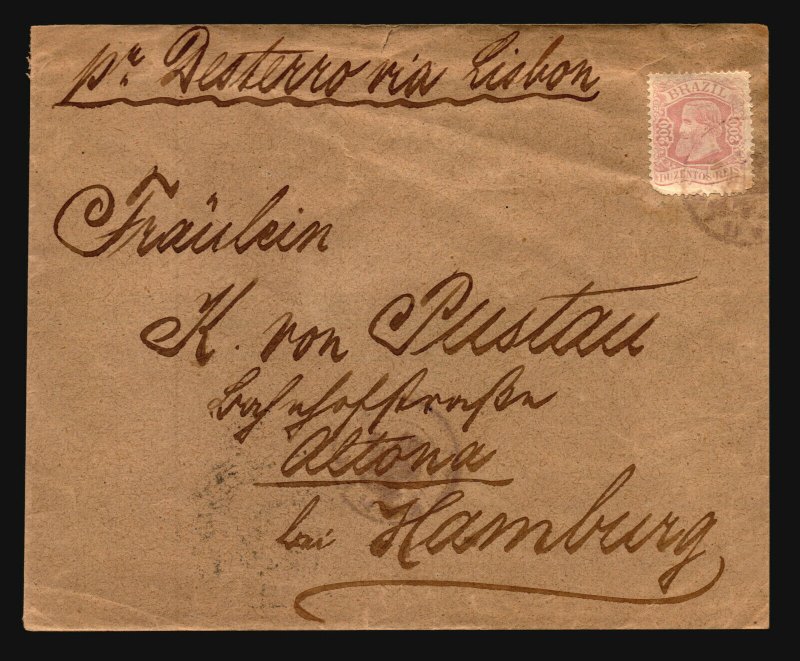 pr Desterro via Lisbon
BRAZIL
200 200
DUZENTOS REIS
Fräulein
K. von Pustau
Bahnhofstraße
Altona
bei Hamburg